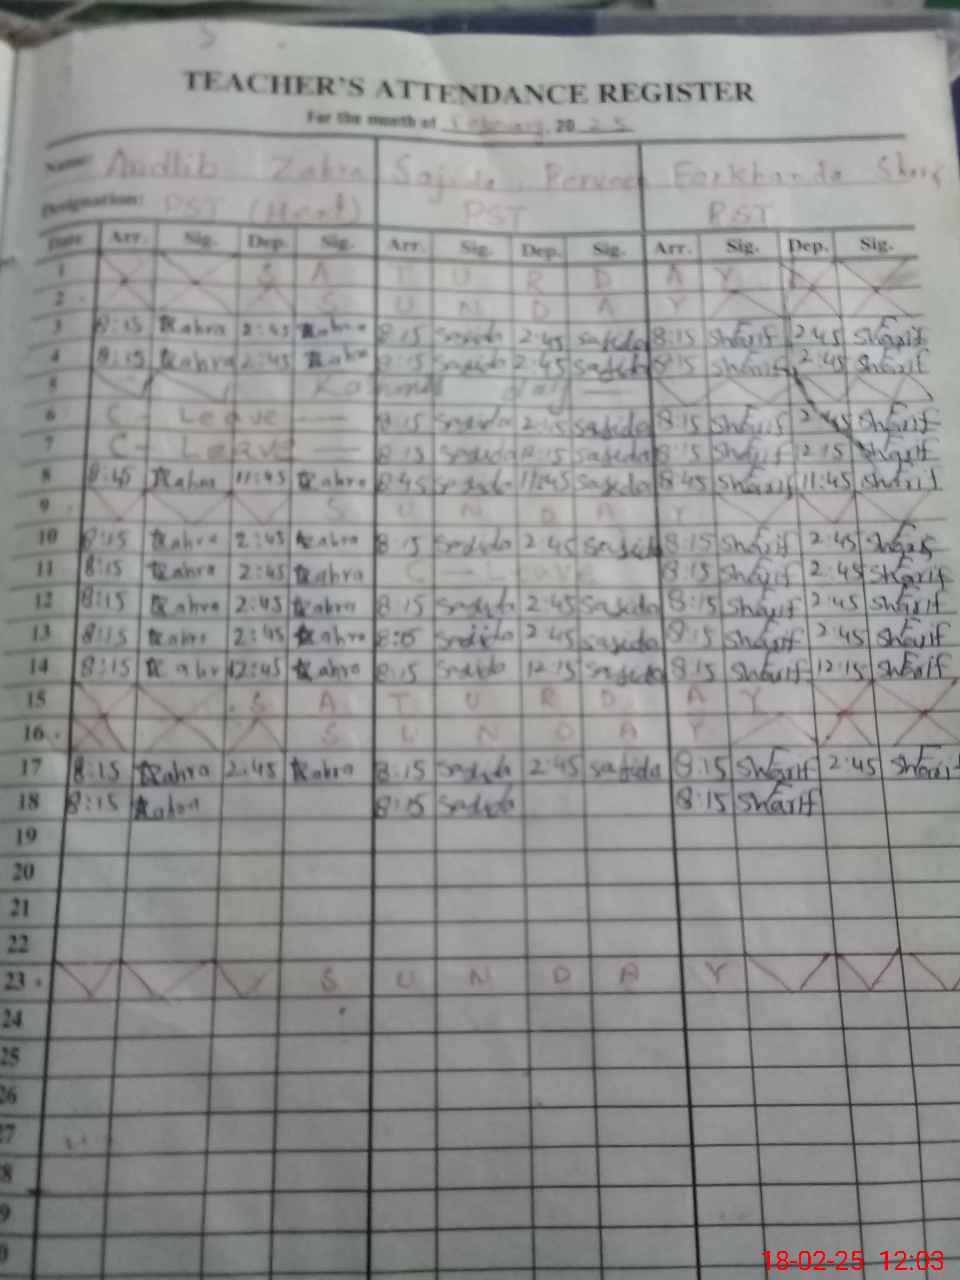 TEACHER'S ATTENDANCE REGISTER
For the month of February, 2025
Name: Andlib Zahra Sajida Perveen Farkhanda Sharif
Designation: PST (Head) PST PST
Date Arr. Sig. Dep. Sig. Arr. Sig. Dep. Sig. Arr. Sig. Dep. Sig.
1 S A T U R D A Y
2 S U N D A Y
3 8:15 Zahra 2:45 Zahra 8:15 Sajida 2:45 Sajida 8:15 Sharif 2:45 Sharif
4 8:15 Zahra 2:45 Zahra 8:15 Sajida 2:45 Sajida 8:15 Sharif 2:45 Sharif
5 Kashmir day
6 C - Leave — 8:15 Sajida 2:45 Sajida 8:15 Sharif 2:45 Sharif
7 C - Leave — 8:15 Sajida 12:15 Sajida 8:15 Sharif 12:15 Sharif
8 8:45 Zahra 11:45 Zahra 8:45 Sajida 11:45 Sajida 8:45 Sharif 11:45 Sharif
9 S U N D A Y
10 8:15 Zahra 2:45 Zahra 8:15 Sajida 2:45 Sajida 8:15 Sharif 2:45 Sharif
11 8:15 Zahra 2:45 Zahra C - Leave 8:15 Sharif 2:45 Sharif
12 8:15 Zahra 2:45 Zahra 8:15 Sajida 2:45 Sajida 8:15 Sharif 2:45 Sharif
13 8:15 Zahra 2:45 Zahra 8:15 Sajida 2:45 Sajida 8:15 Sharif 2:45 Sharif
14 8:15 Zahra 12:45 Zahra 8:15 Sajida 12:15 Sajida 8:15 Sharif 12:15 Sharif
15 S A T U R D A Y
16 S U N D A Y
17 8:15 Zahra 2:45 Zahra 8:15 Sajida 2:45 Sajida 8:15 Sharif 2:45 Sharif
18 8:15 Zahra 8:15 Sajida 8:15 Sharif
19
20
21
22
23 S U N D A Y
24
25
26
27
8
9
0
18-02-25 12:03